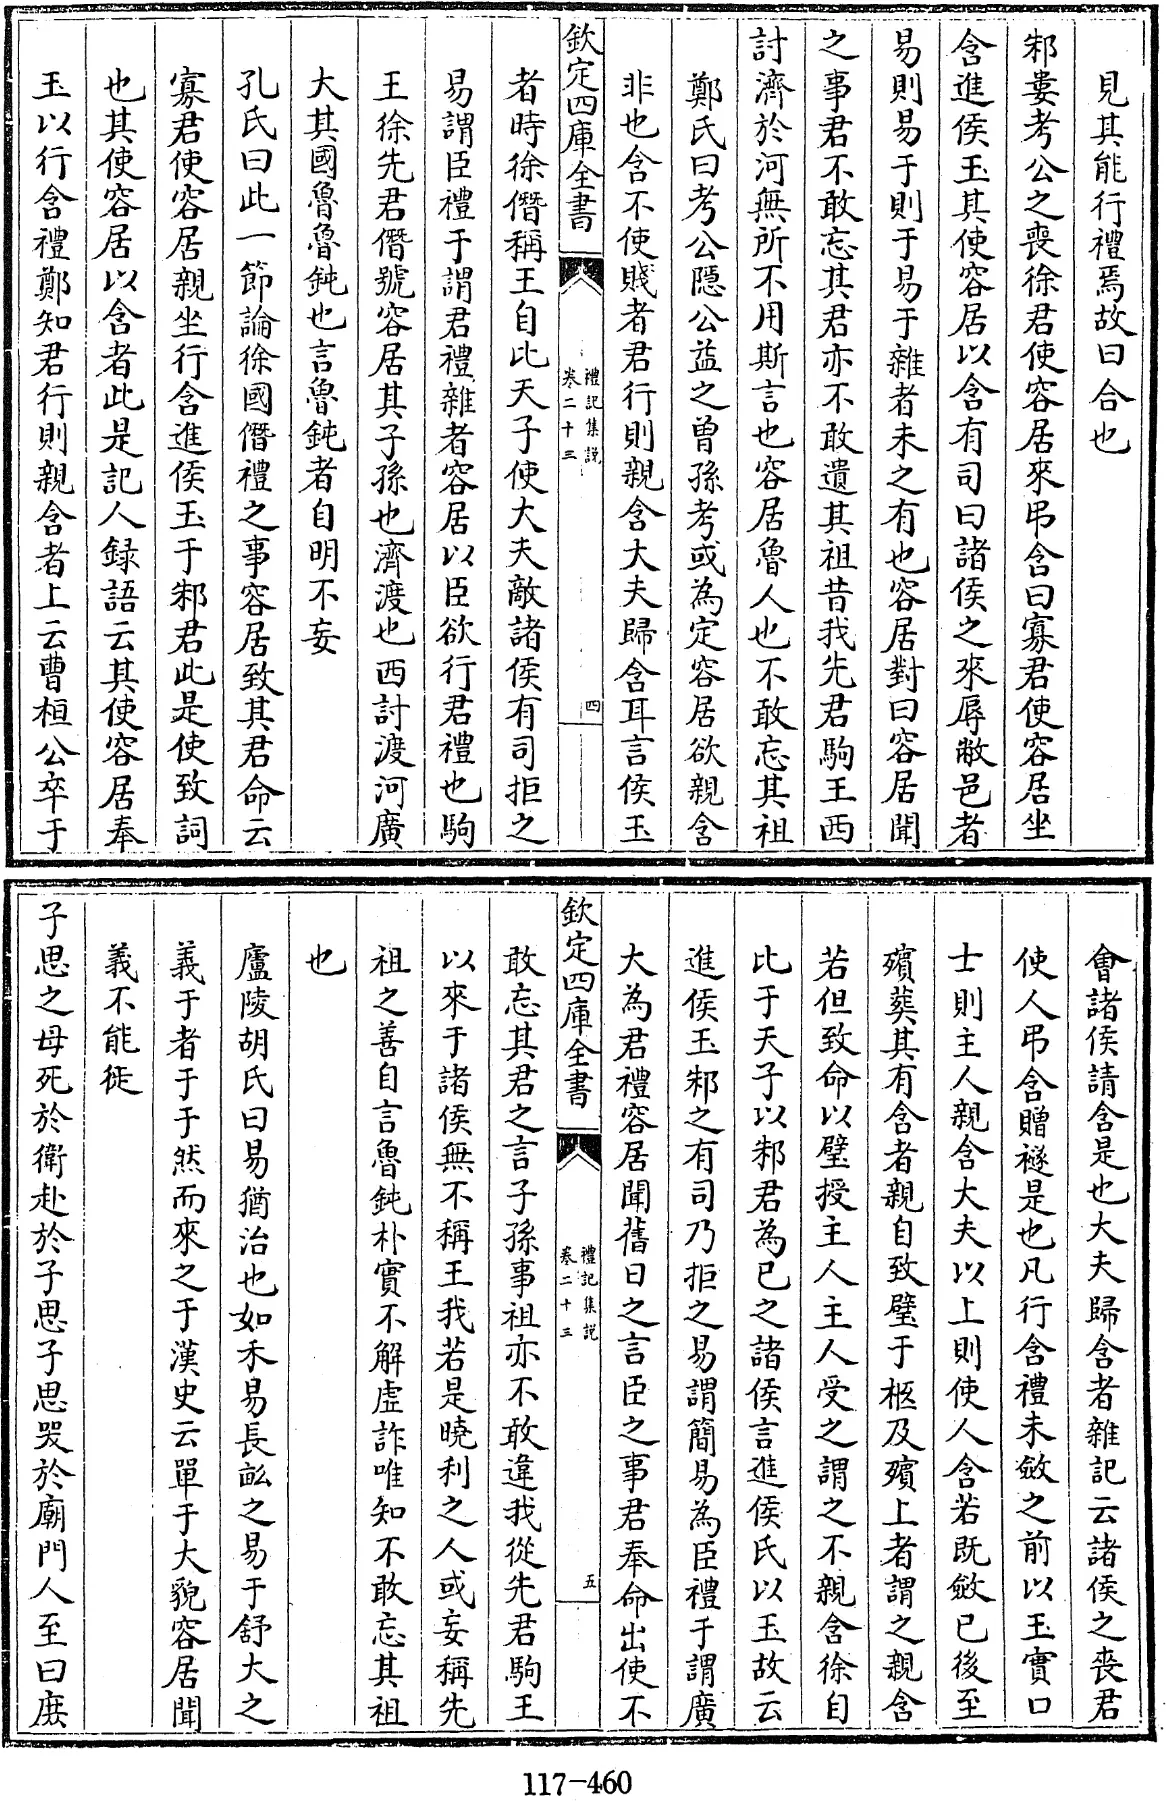 見其能行禮焉故曰合也
邾婁考公之喪徐君使容居來弔含曰寡君使容居坐
含進侯玉其使容居以含有司曰諸侯之來辱敝邑者
易則易于則于易于雜者未之有也容居對曰容居聞
之事君不敢忘其君亦不敢遺其祖昔我先君駒王西
討濟於河無所不用斯言也容居魯人也不敢忘其祖
鄭氏曰考公隱公益之曾孫考或為定容居欲親含
非也含不使賤者君行則親含大夫歸含耳言侯玉
欽定四庫全書
禮記集説
卷二十三
四
者時徐僭稱王自比天子使大夫敵諸侯有司拒之
易謂臣禮于謂君禮雜者容居以臣欲行君禮也駒
王徐先君僭號容居其子孫也濟渡也西討渡河廣
大其國魯魯鈍也言魯鈍者自明不妄
孔氏曰此一節論徐國僭禮之事容居致其君命云
寡君使容居親坐行含進侯玉于邾君此是使致詞
也其使容居以含者此是記人録語云其使容居奉
玉以行含禮鄭知君行則親含者上云曹桓公卒于
會諸侯請含是也大夫歸含者雜記云諸侯之喪君
使人弔含贈襚是也凡行含禮未斂之前以玉實口
士則主人親含大夫以上則使人含若既斂已後至
殯葬其有含者親自致璧于柩及殯上者謂之親含
若但致命以璧授主人主人受之謂之不親含徐自
比于天子以邾君為已之諸侯言進侯氏以玉故云
進侯玉邾之有司乃拒之易謂簡易為臣禮于謂廣
大為君禮容居聞舊日之言臣之事君奉命出使不
欽定四庫全書
禮記集説
卷二十三
五
敢忘其君之言子孫事祖亦不敢違我從先君駒王
以來于諸侯無不稱王我若是曉利之人或妄稱先
祖之善自言魯鈍朴實不解虛詐唯知不敢忘其祖
也
廬陵胡氏曰易猶治也如禾易長畝之易于舒大之
義于者于于然而來之于漢史云單于大貌容居聞
義不能徙
子思之母死於衛赴於子思子思哭於廟門人至曰庶
117-460